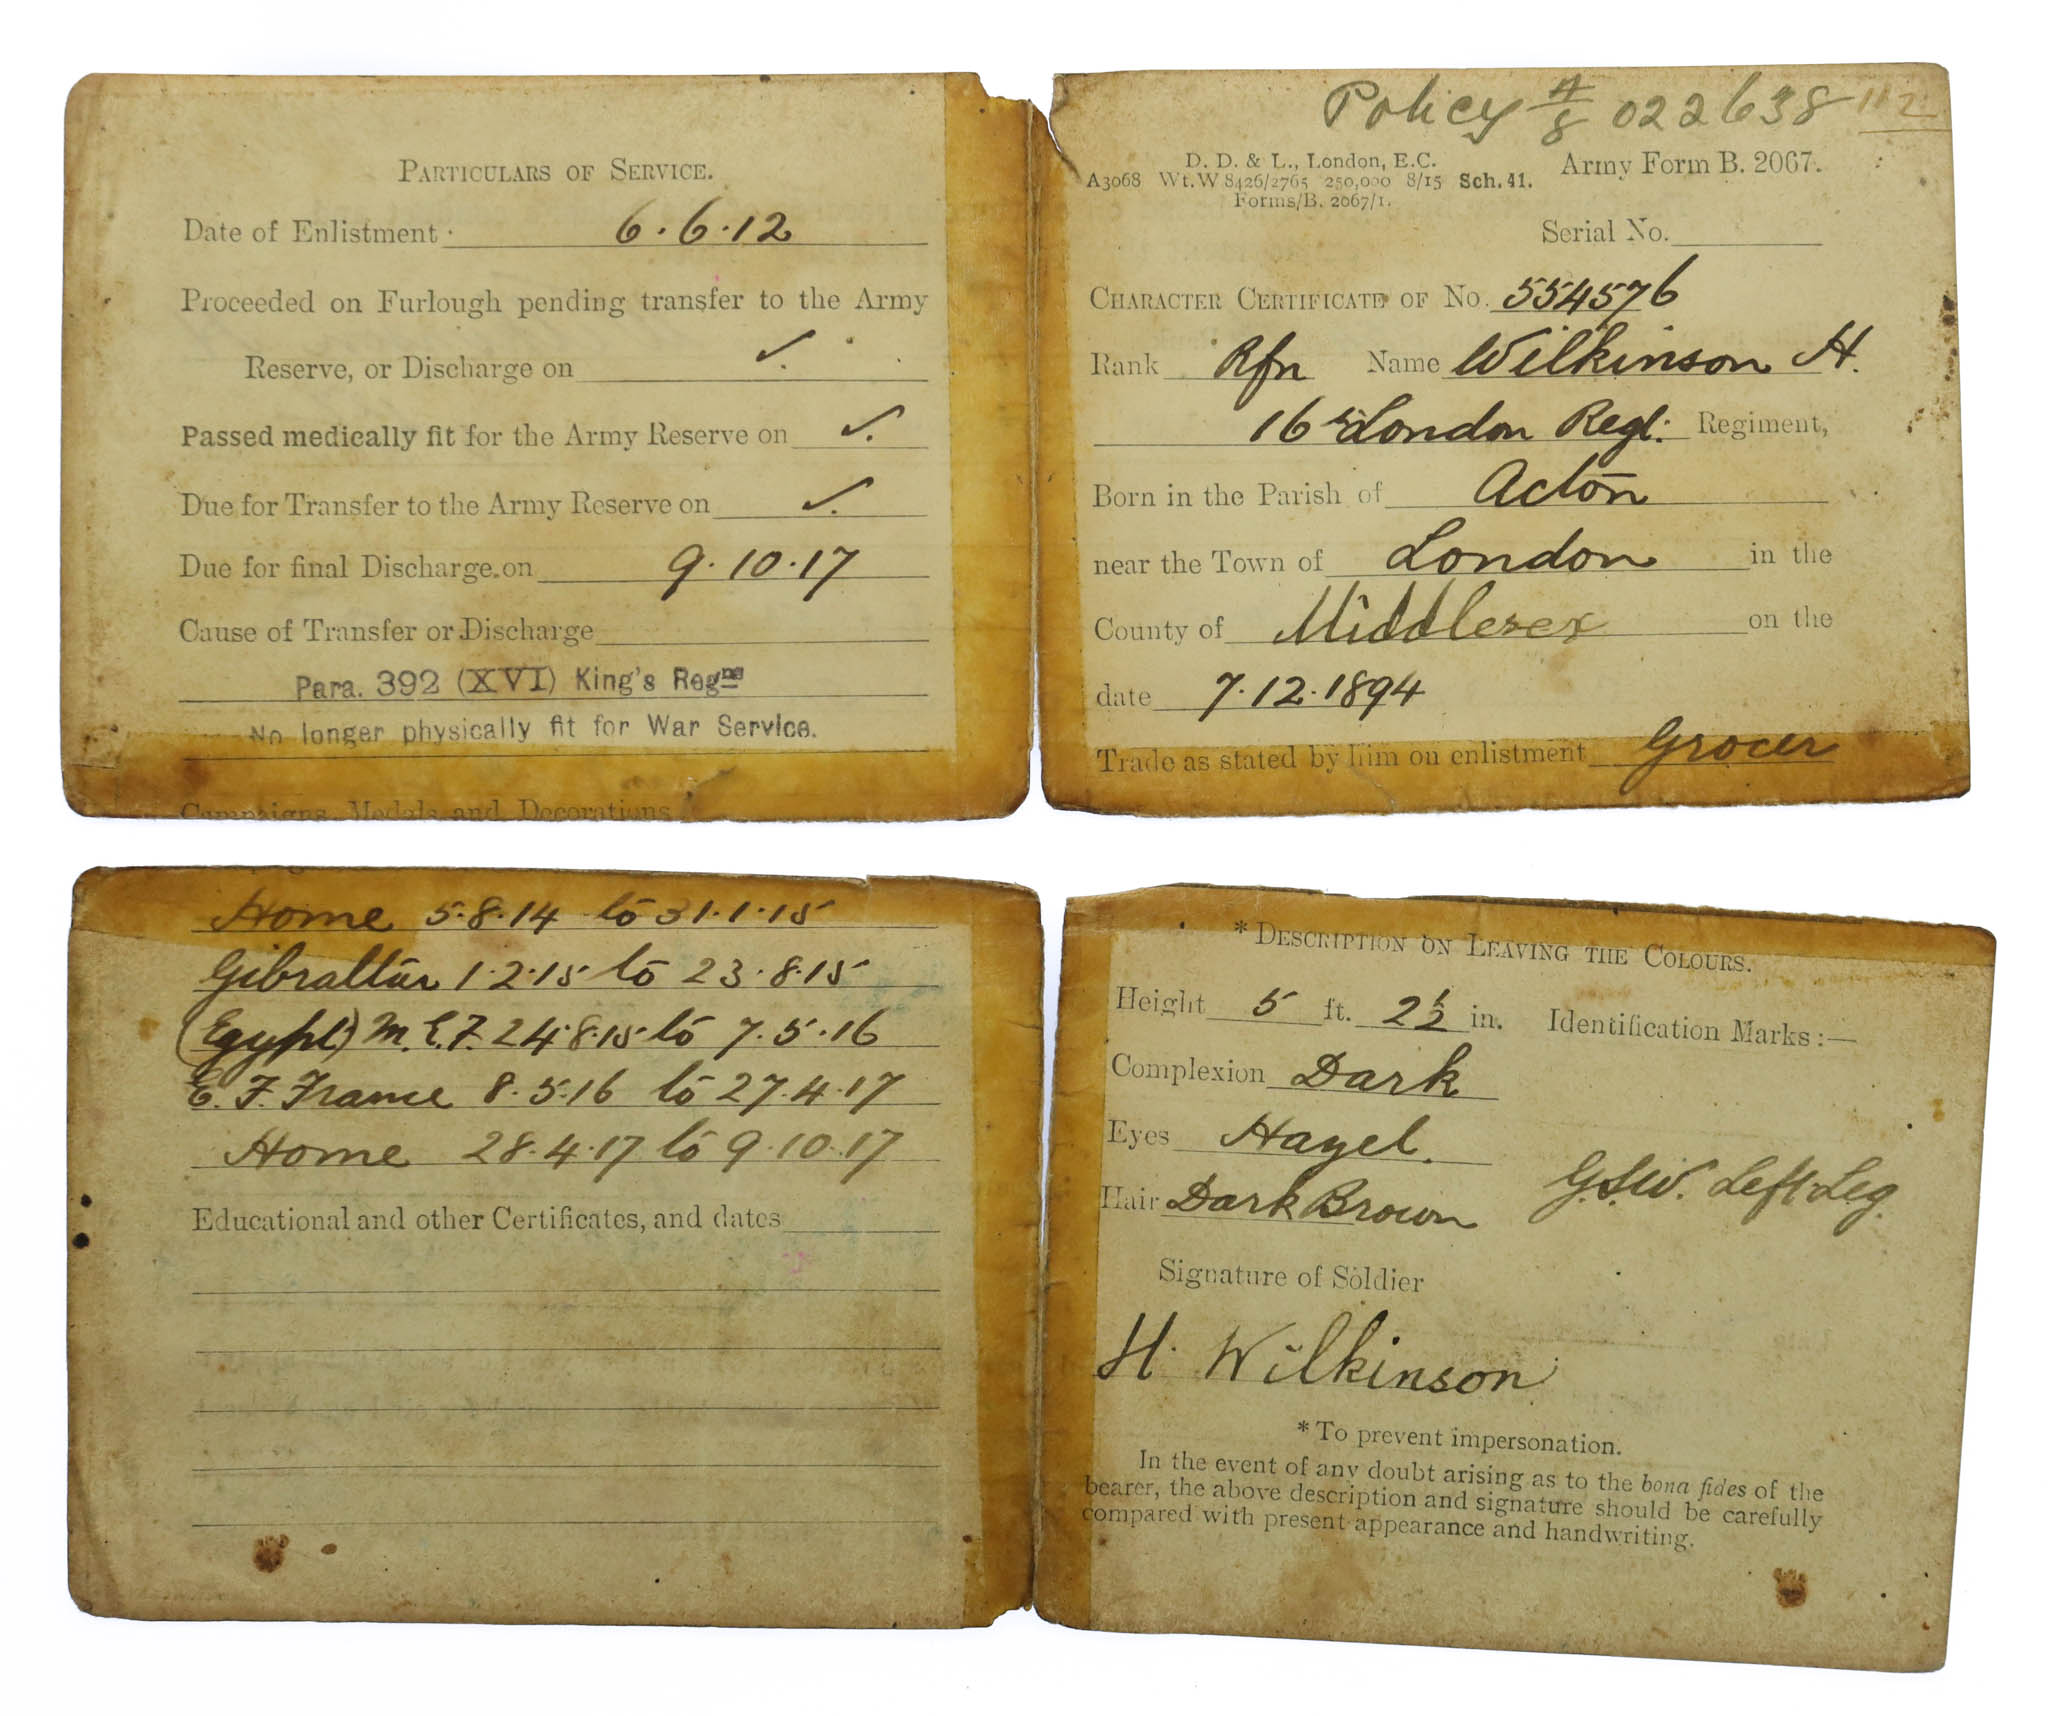 PARTICULARS OF SERVICE.
Date of Enlistment 6.6.12
Proceeded on Furlough pending transfer to the Army
Reserve, or Discharge on ✓.
Passed medically fit for the Army Reserve on ✓.
Due for Transfer to the Army Reserve on ✓.
Due for final Discharge on 9.10.17
Cause of Transfer or Discharge
Para. 392 (XVI) King's Regns
No longer physically fit for War Service.
Campaigns, Medals and Decorations
Policy A/8 022638 112
D. D. & L., London, E.C.
A3068 Wt.W 8426/2765 250,000 8/15 Sch. 41.
Forms/B. 2067/1.
Army Form B. 2067.
Serial No.
CHARACTER CERTIFICATE OF No. 554576
Rank Rfn Name Wilkinson H.
16th London Regt. Regiment,
Born in the Parish of Acton
near the Town of London in the
County of Middlesex on the
date 7.12.1894
Trade as stated by him on enlistment Grocer
Home 5.8.14 to 31.1.15
Gibraltar 1.2.15 to 23.8.15
(Egypt) M.E.F. 24.8.15 to 7.5.16
E.F. France 8.5.16 to 27.4.17
Home 28.4.17 to 9.10.17
Educational and other Certificates, and dates
* DESCRIPTION ON LEAVING THE COLOURS.
Height 5 ft. 2½ in. Identification Marks :—
Complexion Dark
Eyes Hazel.
Hair Dark Brown G.S.W. Left Leg.
Signature of Soldier
H. Wilkinson
* To prevent impersonation.
In the event of any doubt arising as to the bona fides of the
bearer, the above description and signature should be carefully
compared with present appearance and handwriting.